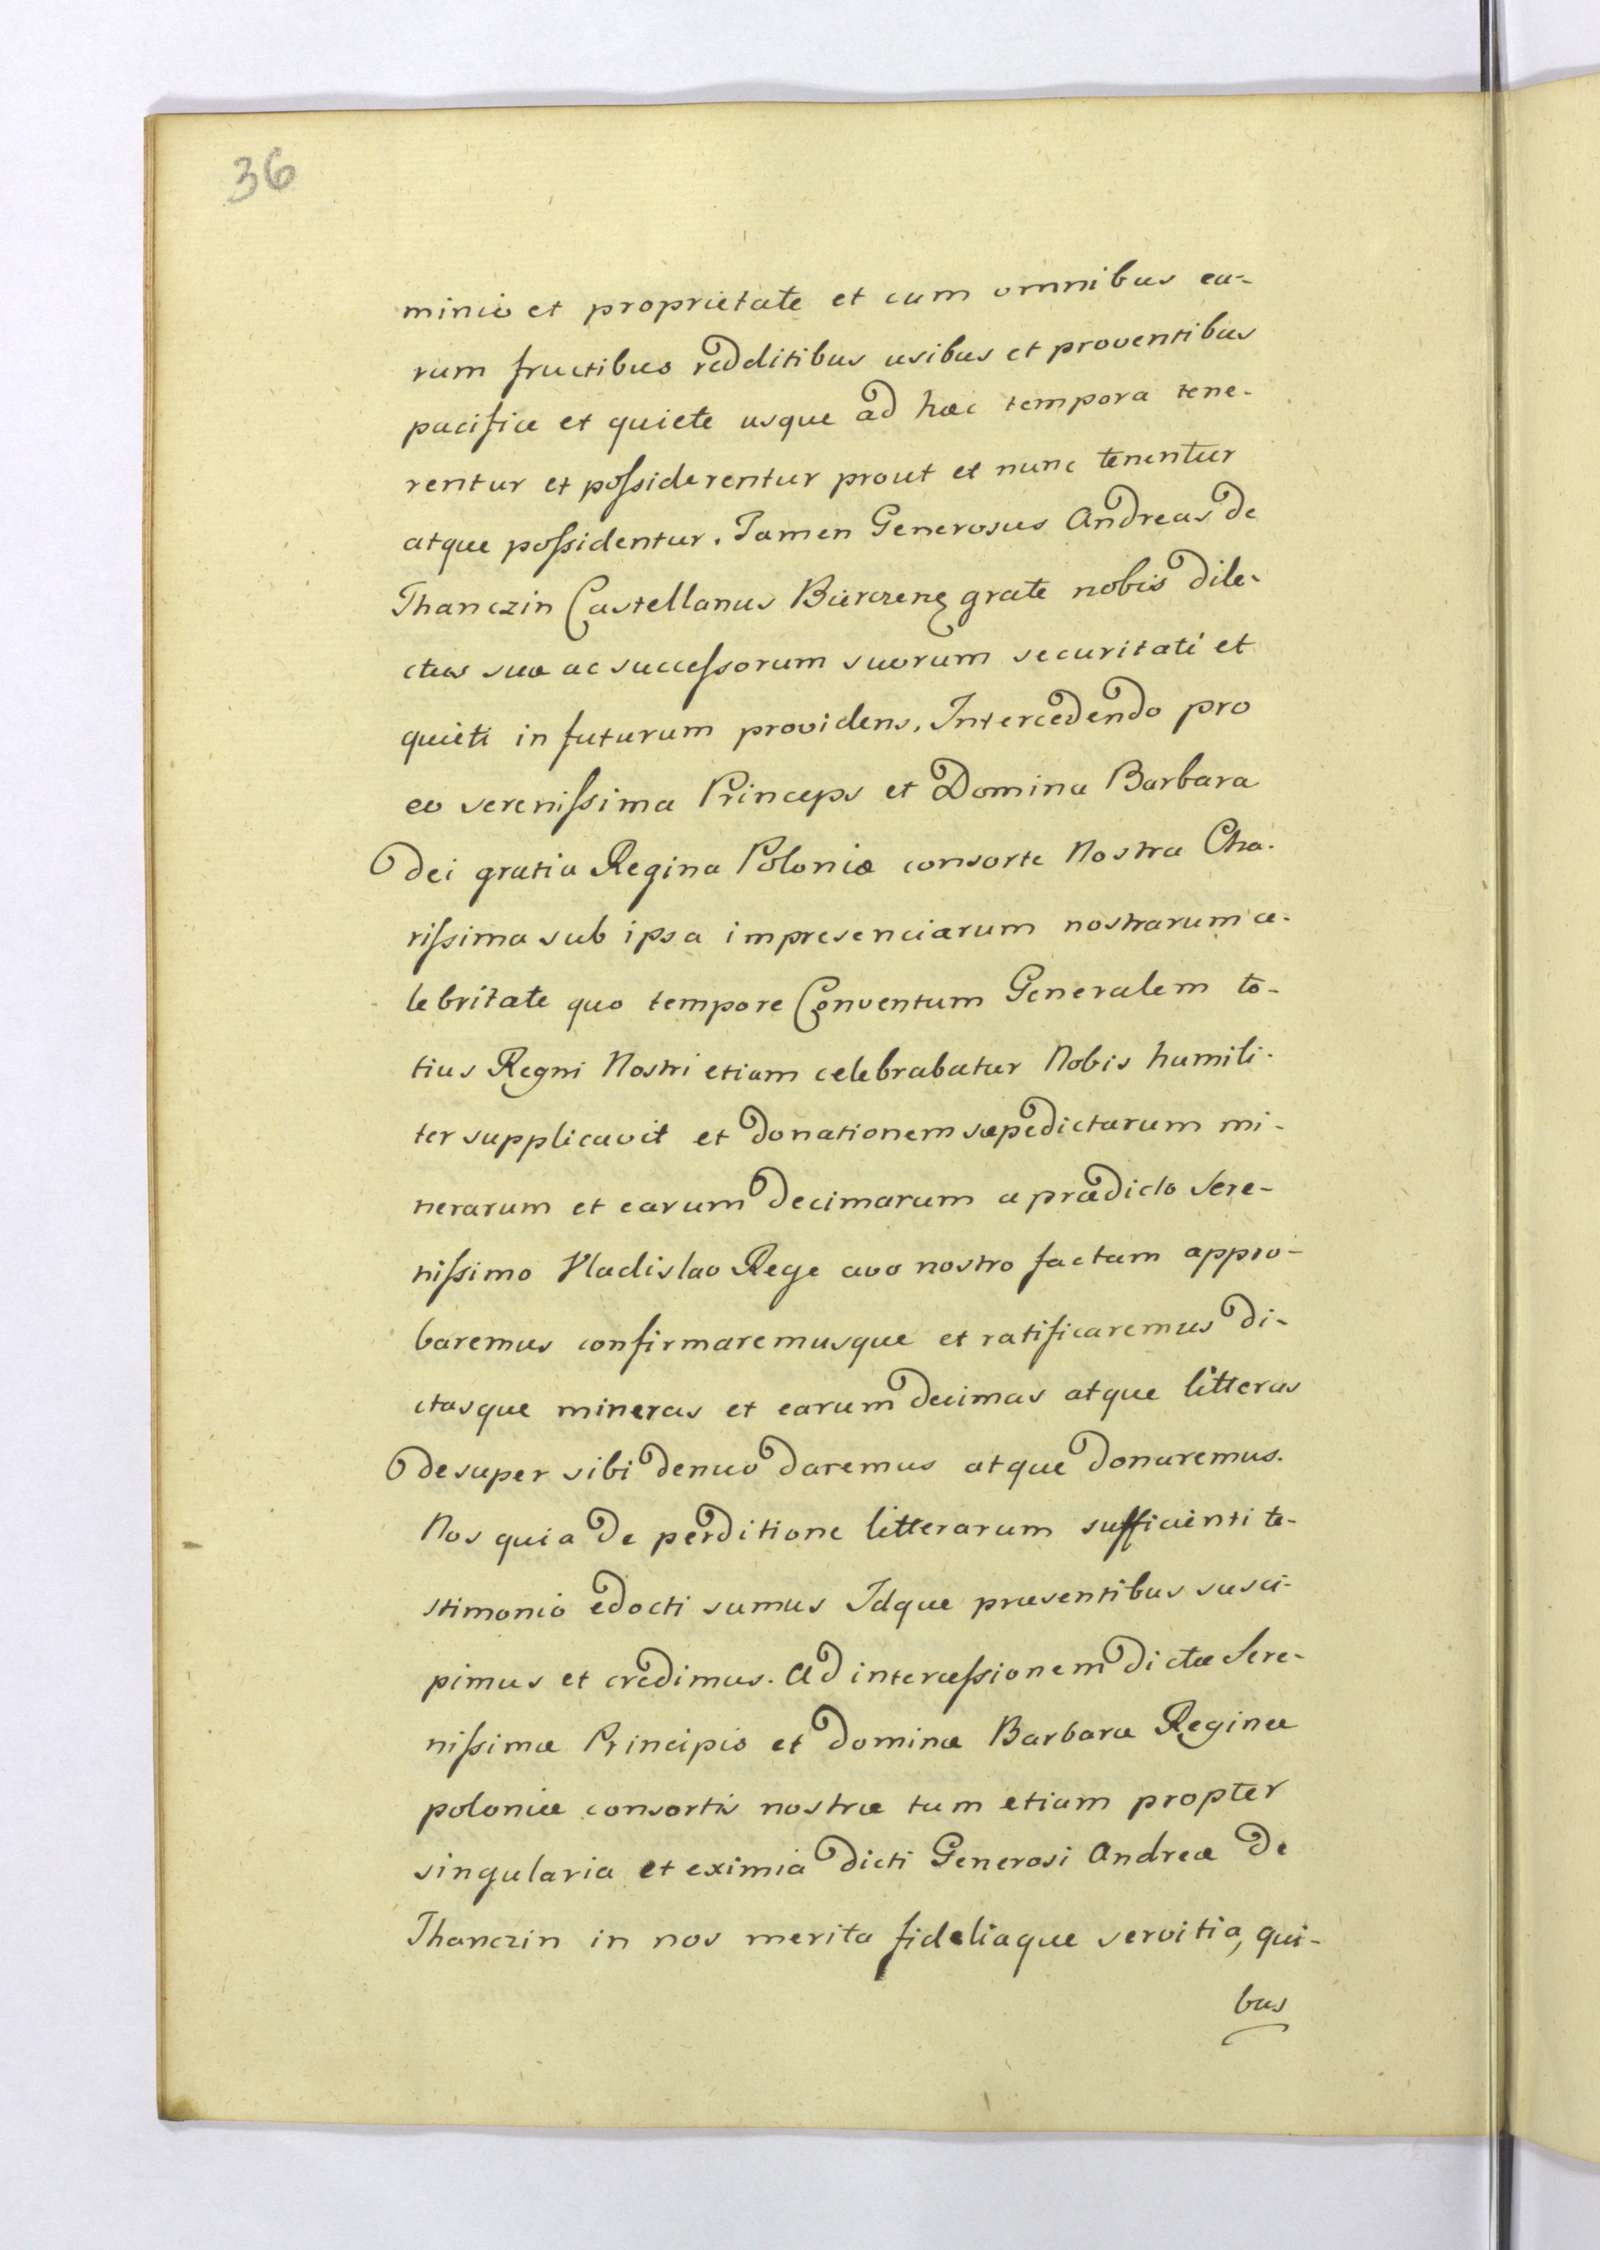 36
minio et proprietate et cum omnibus ea-
rum fructibus redditibus usibus et proventibus
pacifice et quiete usque ad hæc tempora tene-
rentur et possiderentur prout et nunc tenentur
atque possidentur. Tamen Generosus Andreas de
Thanczin Castellanus Bieczenę grate nobis dile-
ctus suæ ac successorum suorum securitati et
quieti in futurum providens. Intercedendo pro
eo serenissima Princeps et Domina Barbara
Dei gratia Regina Poloniæ consorte Nostra Cha-
rissima sub ipsa impresenciarum nostrarum ce-
lebritate quo tempore Conventum Generalem to-
tius Regni Nostri etiam celebrabatur Nobis humili-
ter supplicavit et donationem sæpedictarum mi-
nerarum et earum decimarum a prædicto Sere-
nissimo Vladislao Rege avo nostro factam appro-
baremus confirmaremusque et ratificaremus di-
ctasque mineras et earum decimas atque litteras
desuper sibi denuo daremus atque donaremus.
Nos quia de perditione litterarum sufficienti te-
stimonio edocti sumus Idque præsentibus susci-
pimus et credimus. Ad intercessionem dictæ Sere-
nissimæ Principis et Dominæ Barbaræ Reginæ
poloniæ consortis nostræ tum etiam propter
singularia et eximia dicti Generosi Andreæ de
Thanczin in nos merita fideliaque servitia, qui-
bus